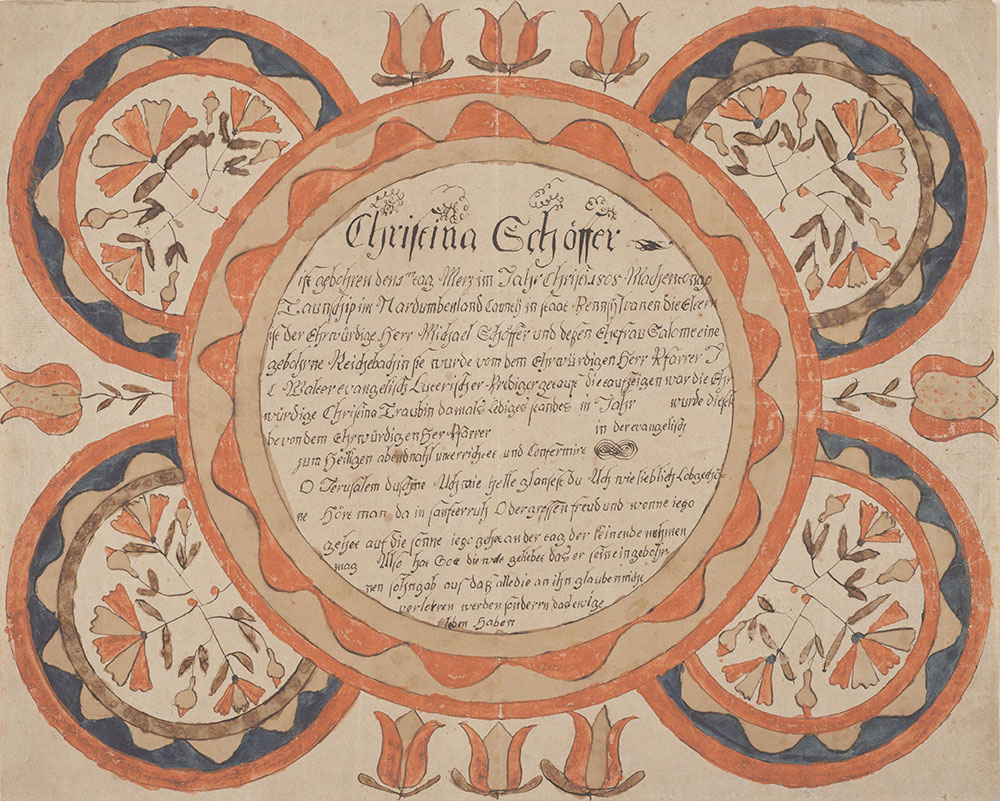 Christina Schöffer
ist gebohren den 1ten tag Merz im Jahr Christi 1808 Machentongo
Taunschip in Nardumbenland Caunty in staat Pennsylvanen die Eltern
ist der Ehrwürdige Herr Michael Schöffer und deßen Ehefrau Salome eine
gebohrne Reichebachin sie wurde von dem Ehrwürdigen Herr Pfärrer J
C Walter evangelisch Luterischer Prediger getauft die taufzeigen war die Ehr
würdige Christina Traubin damals Lediges standes in Jahr wurde dieselt
be von dem Ehrwürdigen Her Pfärrer in der evangelisch
zum Heiligen abendmahl unterrichtet und Confermirt
O Jerusalem du schöne Ach wie helle glanset Du Ach wie lieblich Lobgetö
ne Hört man da in sanfter ruh O der grossen freud und wonne iezo
gehet auf die sonne iezo gehet an der tag der kein ende nehmen
mag Also hat Got die welt geliebet das er sein eingebohr
nen sohn gab auf daß alle die an ihn glauben nicht
verlohren werden sonderen das ewige
leben Haben